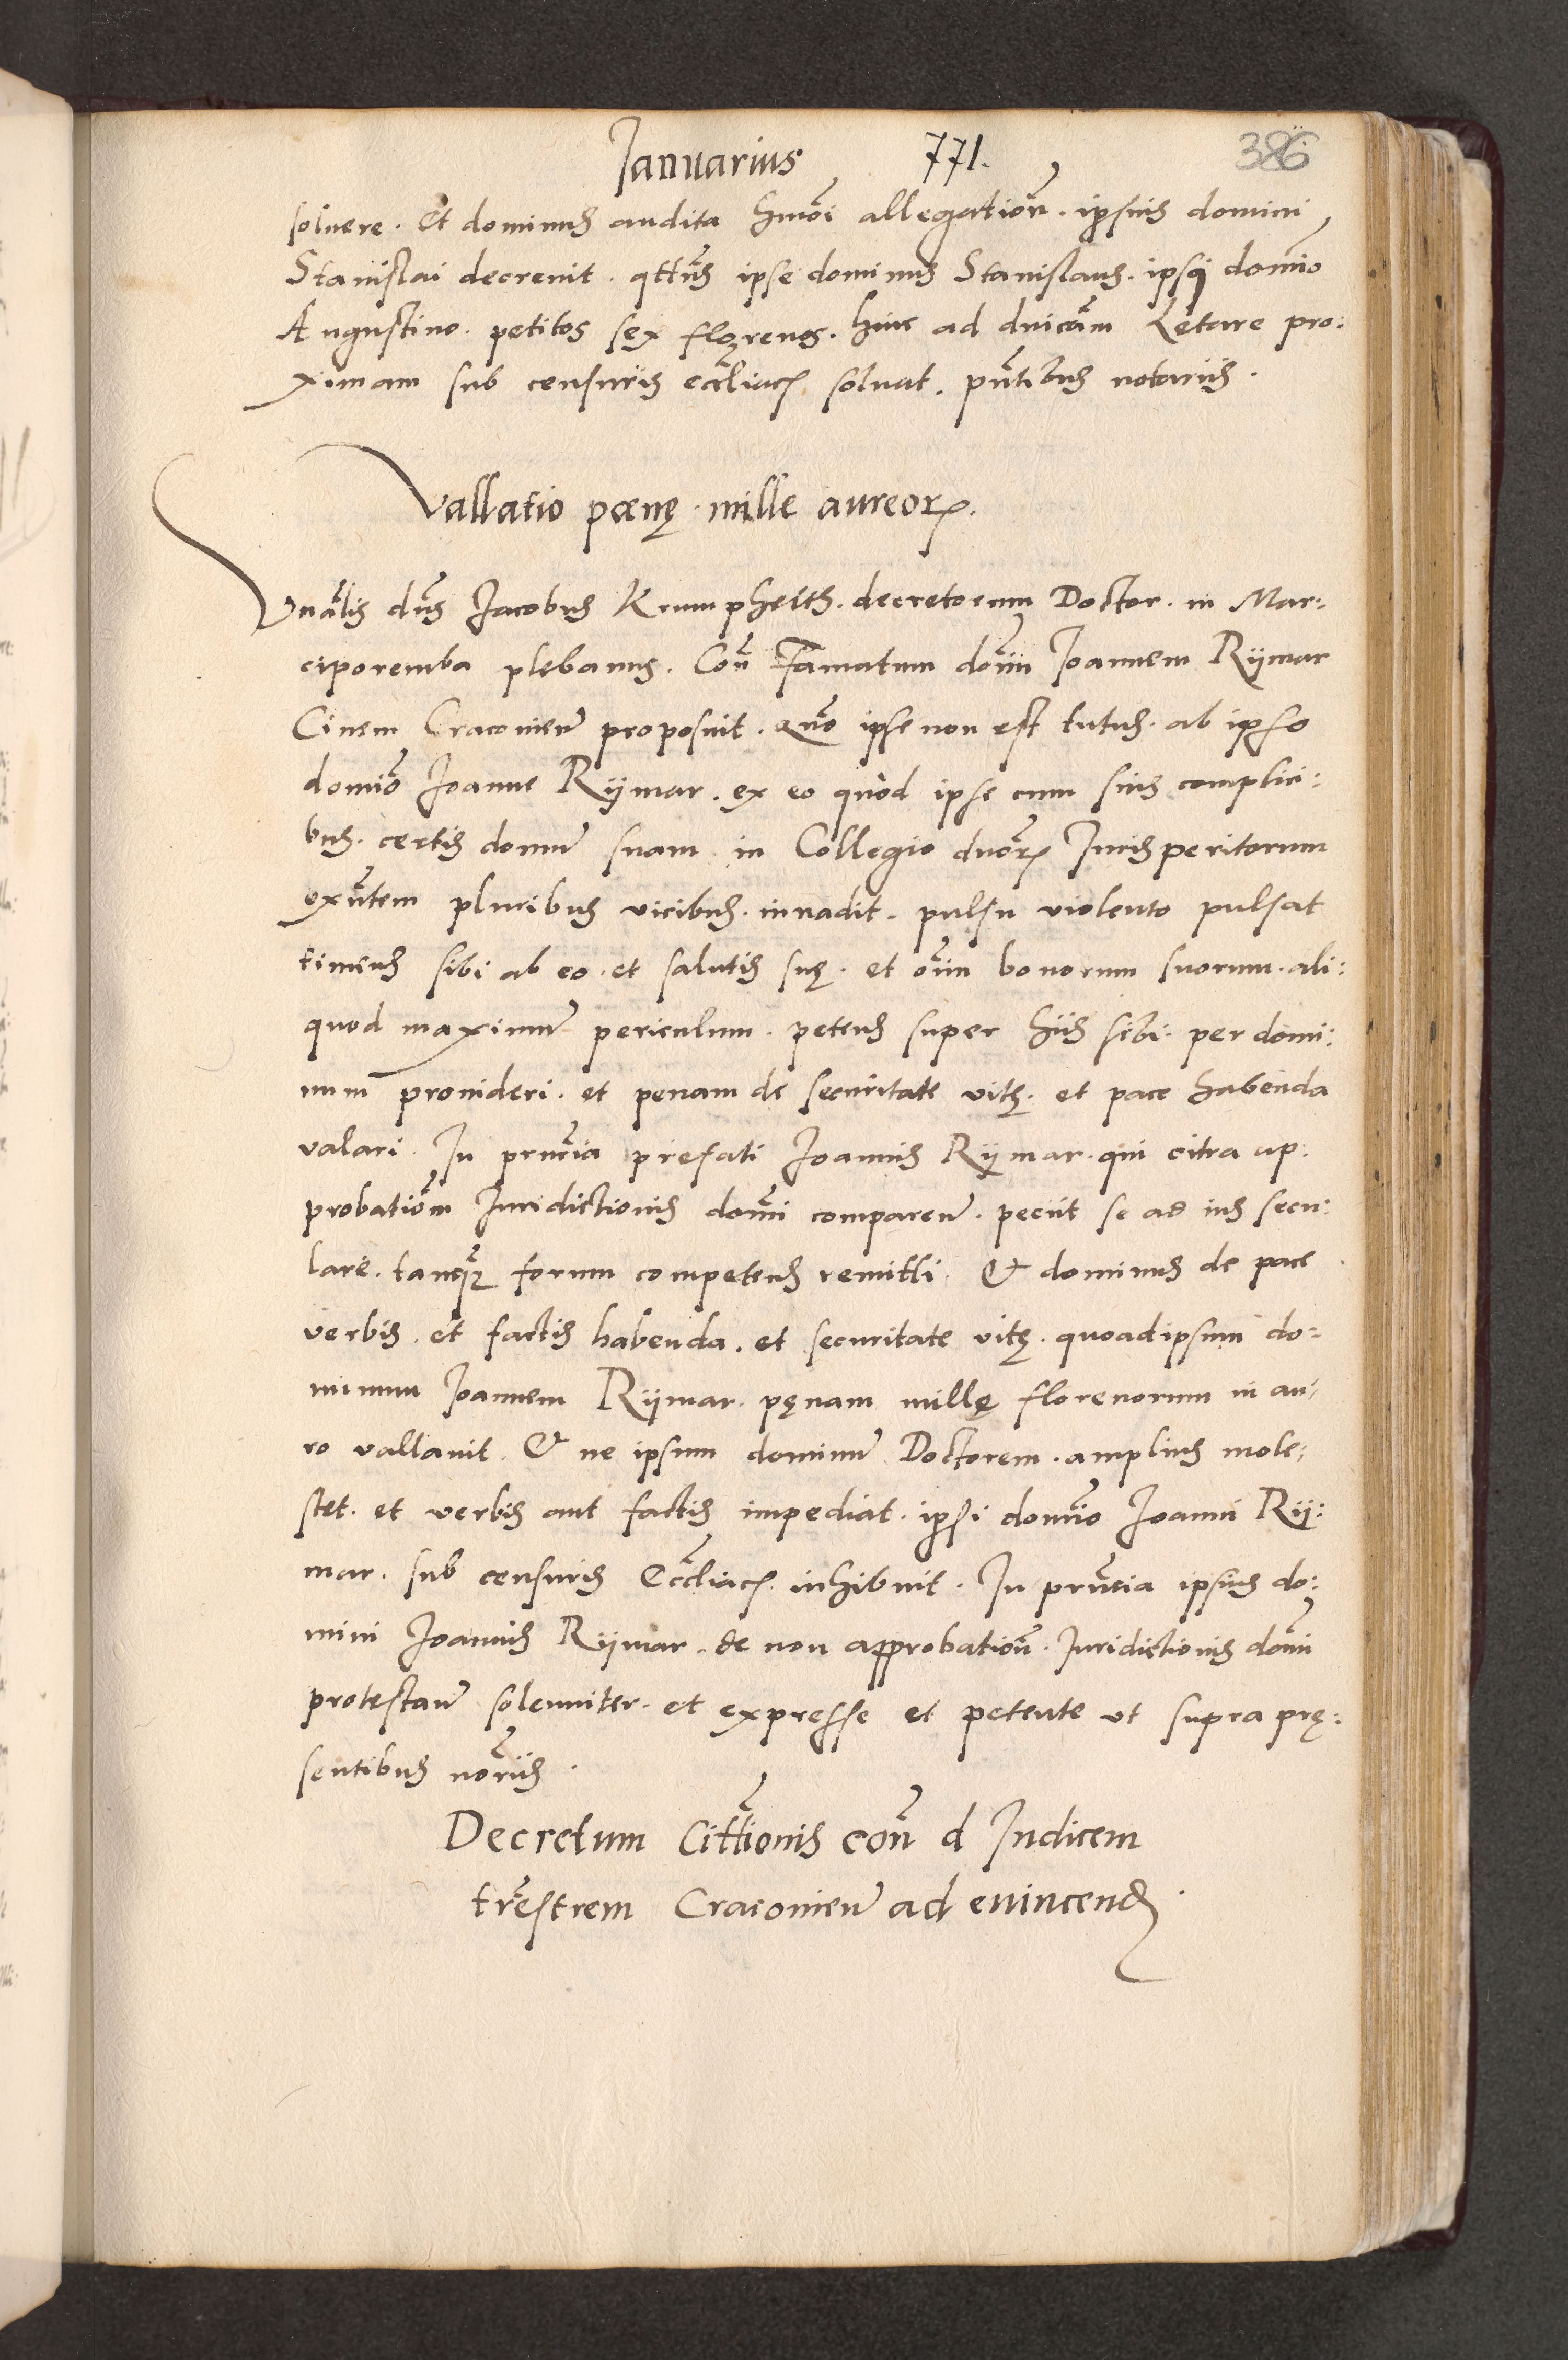 Ianuarius 771. 386
soluere. Et dominus audita hmõi allegation̄. ipsius domini
Stanislai decreuit. qtñs ipse dominus Stanislaus. ipsi domĩo
Augustino. petitos sex florenos. hinc ad dnicãm Letare pro:
ximam sub censuris eccliacȝ soluat. pñtibus notariis.
Vallatio poenę mille aureorȝ.
Vnãlis dñs Jacobus Krumpheltz. decretorum Doctor. in Mar:
ciporemba plebanus. Coñ Famatum domĩ Joannem Rÿmar
Ciuem Cracouieñ proposuit. Quo ipse non est tutus. ab ipso
domĩo Joanne Rÿmar. ex eo quòd ipse cum suis complici:
bus. certis domũ suam in Collegio dnorȝ Jurisperitorum
exñtem pluribus vicibus. inuadit. pulsu violento pulsat
timens sibi ab eo. et salutis suę. et oĩm bonorum suorum. ali:
quod maximũ periculum. petens super hiis sibi. per domi:
num prouideri. et penam de securitate vitę. et pace habenda
valari. In prñcia prefati Joannis Rÿmar. qui citra ap:
probatiõm Jurisdictionis domĩ compareñ. peciit se ad ius secu:
lare. tanq̃ȝ forum competens remitti. Et dominus de pace
verbis. et factis habenda. et securitate vitę. quoad ipsum do:
minum Joannem Rÿmar. pęnam millę florenorum in au:
ro vallauit. Et ne ipsum dominũ Doctorem. amplius mole:
stet. et verbis aut factis impediat. ipsi domĩo Joanni Rÿ:
mar. sub censuris Eccliacȝ. inhibuit. In prñtia ipsius do:
mini Joannis Rÿmar. de non approbation̄. Juridictionis domĩ
protestañ solenniter. et expresse et petente vt supra prę:
sentibus nor̃iis.
Decretum Citt̃ionis coñ d Iudicem
tr̃estrem Cracouieñ ad euincend̃.